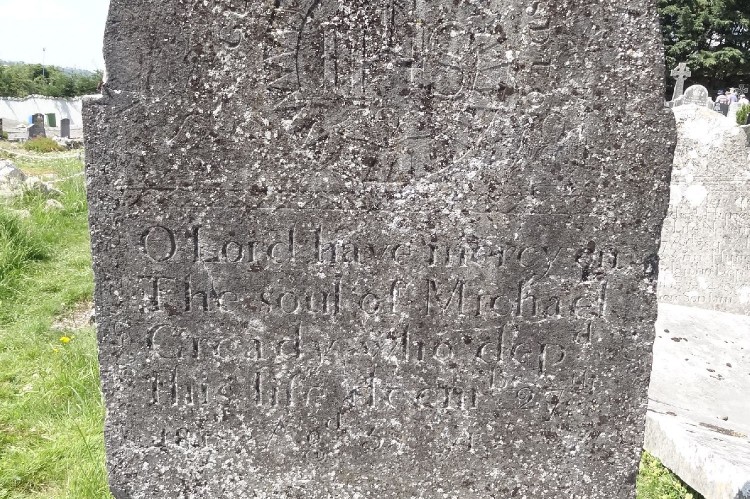 IHS
O Lord have mercy on
The soul of Michael
Gready who depd
This life decmber
Agd